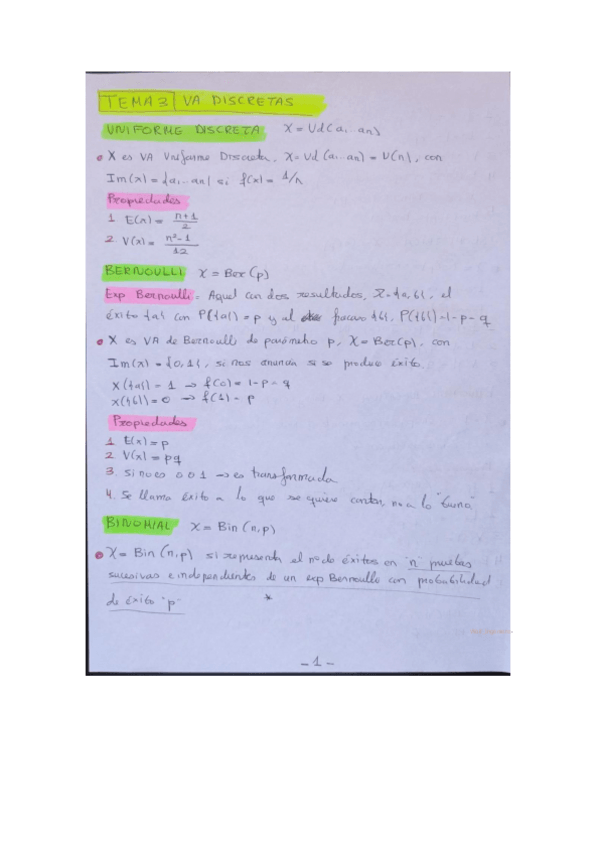 TEMA 3 VA DISCRETAS
UNIFORME DISCRETA X = Ud(a,...an)
• X es VA Uniforme Discreta, X=Ud(a,...an) = U(n), con
Im(x) = {a,...an} si f(x) = 1/n
Propiedades
1. E(x) = n+1/2
2. V(x) = n²-1/12
BERNOULLI X = Ber(p)
Exp Bernoulli = Aquel con dos resultados, {a,b}, el
éxito {a} con P({a}) = p y al fracaso {b}, P({b}) = 1-p = q
• X es VA de Bernoulli de parámetro p, X = Ber(p), con
Im(x) = {0,1}, si nos anuncia si se produce éxito.
X({a}) = 1 → f(0) = 1-p = q
X({b}) = 0 → f(1) = p
Propiedades
1 E(x) = p
2 V(x) = pq
3. Si no es 0 o 1 → es transformada
4. Se llama éxito a lo que se quiere contar, no a lo "bueno".
BINOMIAL X = Bin(n,p)
• X = Bin(n,p) si representa el nº de éxitos en "n" pruebas
sucesivas e independientes de un exp Bernoulli con probabilidad
de éxito "p" *
- 1 -